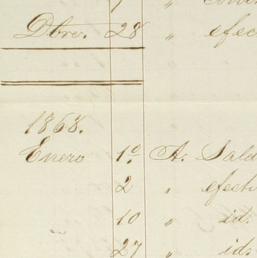 Dbre. 28 " efec
1868.
Enero 1º A. Sald
2 " efecti
10 " id.
27 " id.